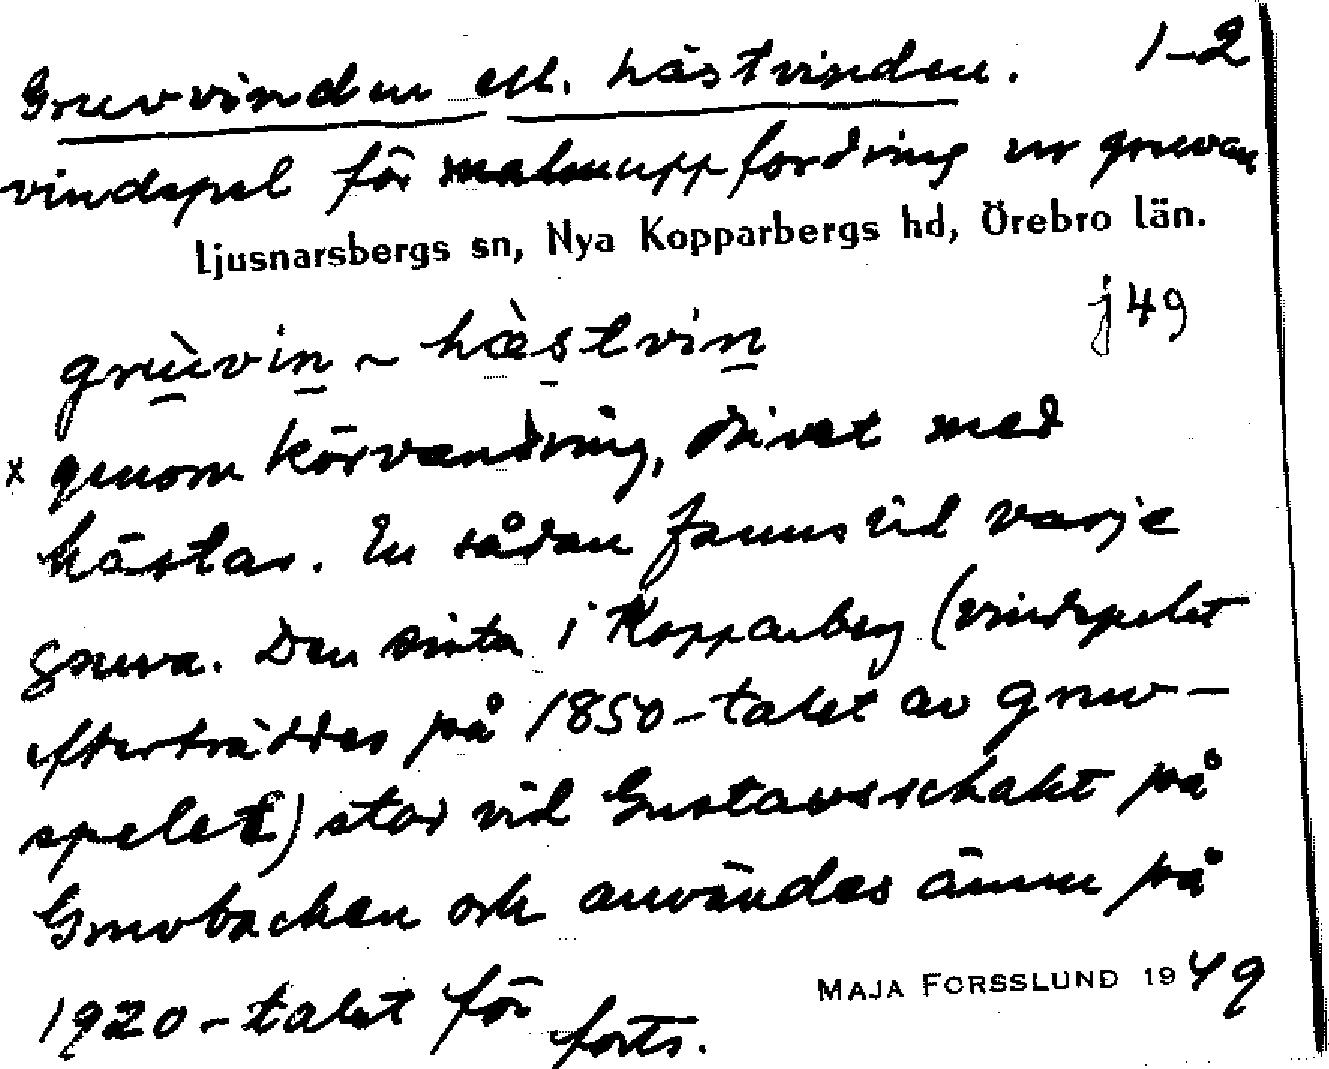 Gruvvinden ell. hästvinden. 1-2
vindspel för malmuppfordring ur gruvan
Ljusnarsbergs sn, Nya Kopparbergs hd, Örebro län.
j 49
grùvin ~ hæ̀stvin
x genom körvandring, drivet med
hästar. En sådan fanns vid varje
gruva. Den sista i Kopparberg (vindspelet
efterträddes på 1850-talet av gruv-
spelet) stod vid Gustavsschaktet på
Gruvbacken och användes ännu på
1920-talet för
forts.
MAJA FORSSLUND 1949